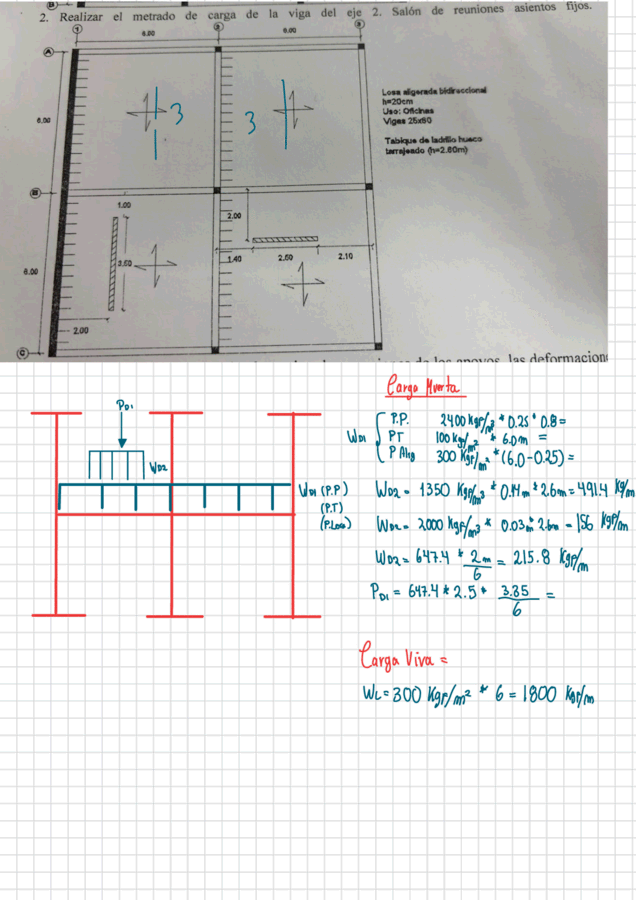 2. Realizar el metrado de carga de la viga del eje 2. Salón de reuniones asientos fijos.
1 2 3
6.00
A
Losa aligerada bidireccional
h=20cm
Uso: Oficinas
Vigas 25x60
Tabique de ladrillo hueco
tarrajeado (h=2.60m)
6.00
3 3
B
1.00
2.00
3.50
1.40 2.10
6.00
2.00
C
Carga Muerta
PD1
WD2
WD1 (P.P)
(P.T)
(P.Losa)
WD1
P.P. 2400 Kgf/m³ * 0.25 * 0.8 =
PT 100 Kg/m² * 6.0m =
P Alig 300 Kgf/m² * (6.0-0.25) =
WD2 = 1350 Kgf/m³ * 0.14m * 2.6m = 491.4 Kg/m
WD2 = 2000 Kgf/m³ * 0.03m * 2.6m = 156 Kgf/m
WD2 = 647.4 * 2m/6 = 215.8 Kgf/m
PD1 = 647.4 * 2.5 * 3.85/6 =
Carga Viva =
WL = 300 Kgf/m² * 6 = 1800 Kgf/m